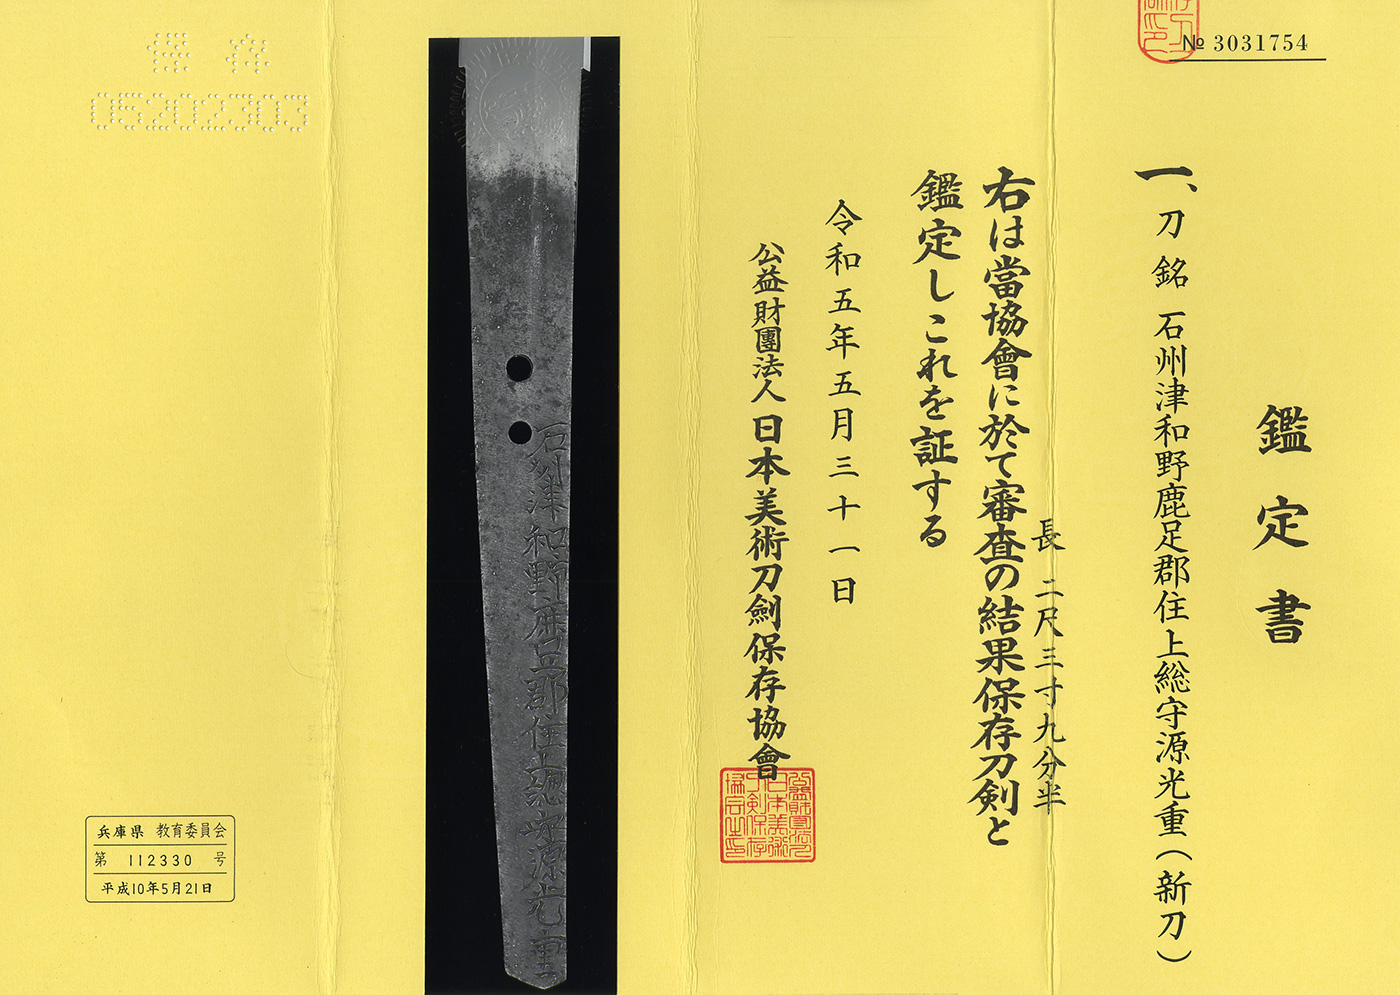 № 3031754
鑑定書
一、刀 銘 石州津和野鹿足郡住上総守源光重(新刀)
長 二尺三寸九分半
右は當協會に於て審査の結果保存刀剣と
鑑定しこれを証する
令和五年五月三十一日
公益財團法人 日本美術刀劍保存協會
石州津和野鹿足郡住上総守源光重
保存
05202303
兵庫県 教育委員会
第 112330 号
平成10年5月21日